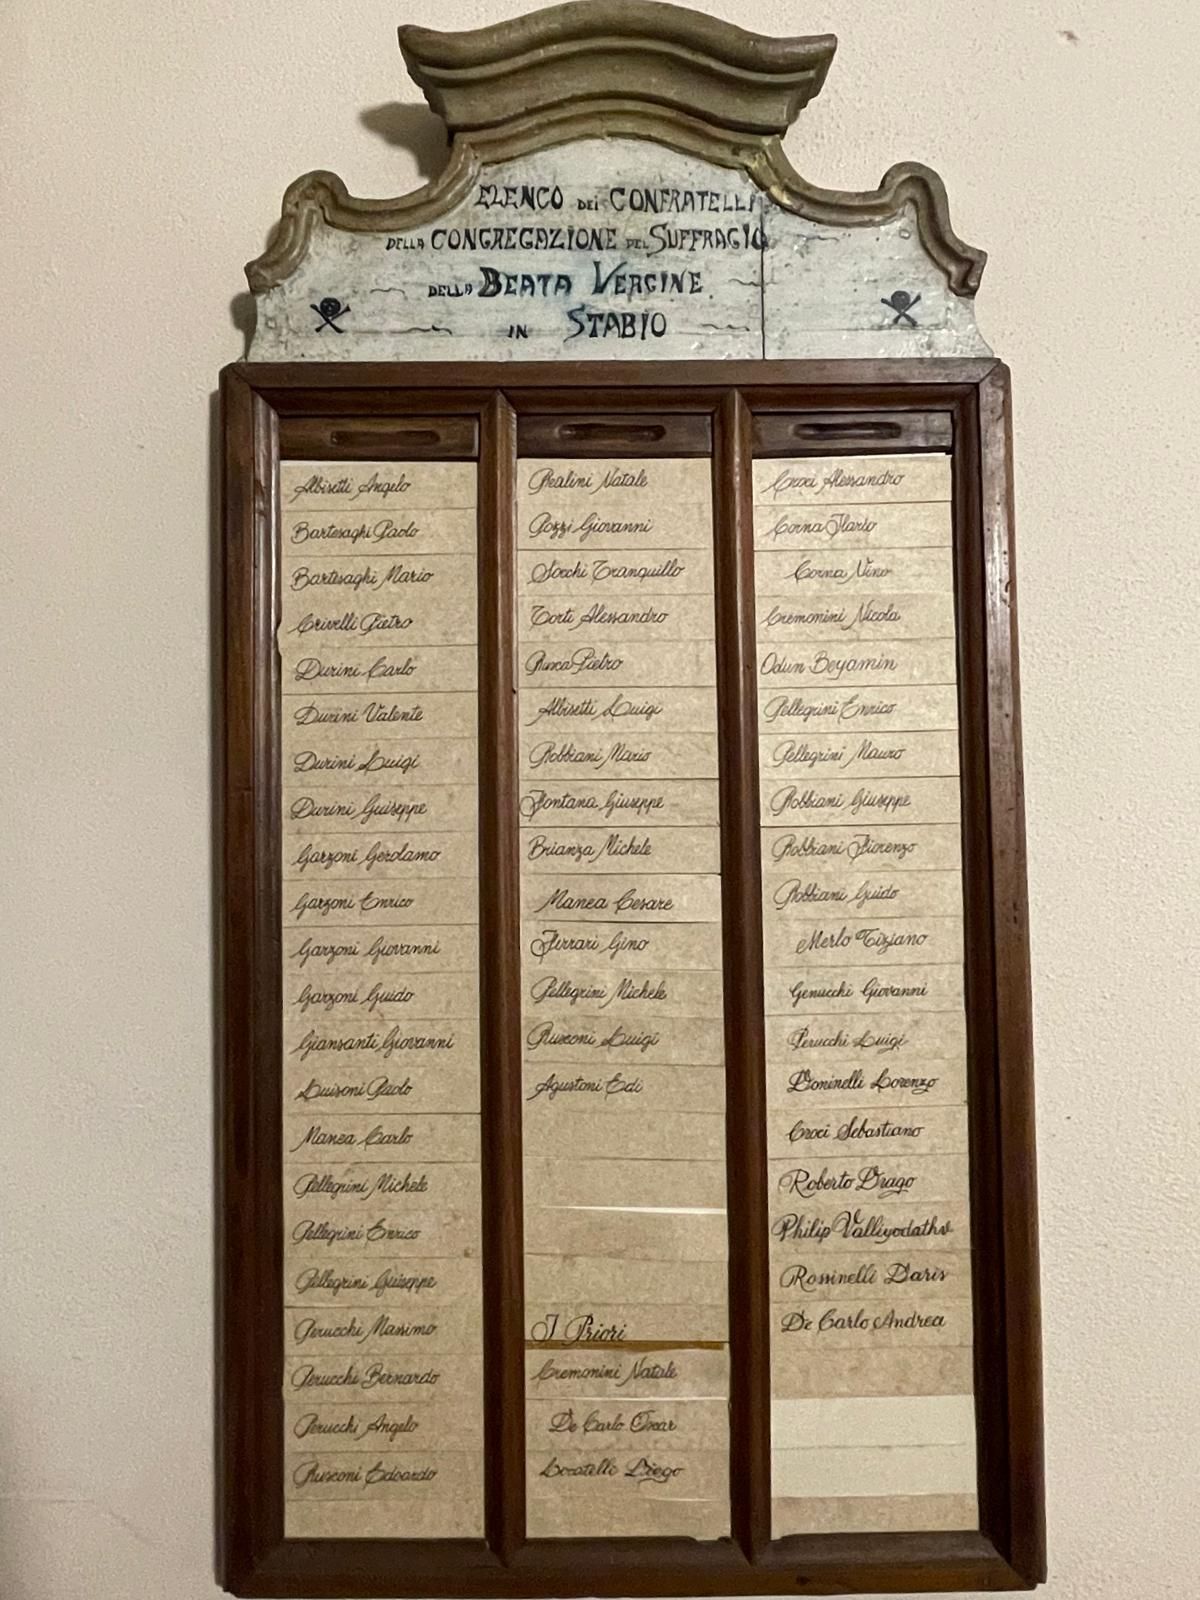 ELENCO DEI CONFRATELLI
DELLA CONGREGAZIONE DEL SUFFRAGIO
DELLA BEATA VERGINE
IN STABIO
Albisetti Angelo
Bartesaghi Paolo
Bartesaghi Mario
Crivelli Pietro
Durini Carlo
Durini Valente
Durini Luigi
Durini Giuseppe
Garzoni Gerolamo
Garzoni Enrico
Garzoni Giovanni
Garzoni Guido
Giansanti Giovanni
Luisoni Paolo
Manea Carlo
Pellegrini Michele
Pellegrini Enrico
Pellegrini Giuseppe
Perucchi Massimo
Perucchi Bernardo
Perucchi Angelo
Rusconi Edoardo
Realini Natale
Pozzi Giovanni
Socchi Tranquillo
Torti Alessandro
Rusca Pietro
Albisetti Luigi
Robbiani Mario
Fontana Giuseppe
Brianza Michele
Manea Cesare
Ferrari Gino
Pellegrini Michele
Rusconi Luigi
Agustoni Edi
I Priori
Cremonini Natale
De Carlo Oscar
Locatelli Diego
Croci Alessandro
Corna Ilario
Corna Nino
Cremonini Nicola
Odun Beyamin
Pellegrini Enrico
Pellegrini Mauro
Robbiani Giuseppe
Robbiani Fiorenzo
Robbiani Guido
Merlo Tiziano
Genucchi Giovanni
Perucchi Luigi
Doninelli Lorenzo
Croci Sebastiano
Roberto Drago
Philip Valliyodathu
Rossinelli Daris
De Carlo Andrea